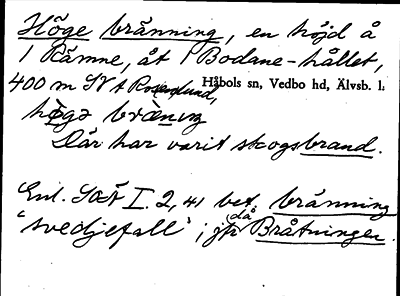 Höge bränning, en höjd å
1 Rämne, åt Bodane-hållet,
400 m SV t Rosenlund, Håbols sn, Vedbo hd, Älvsb. l.
hø̀gə bræ̀nıŋ
Där har varit skogsbrand.
Enl. SOÄ I. 2, 41 bet. bränning
'svedjefall'; jfr då Bråtningen.